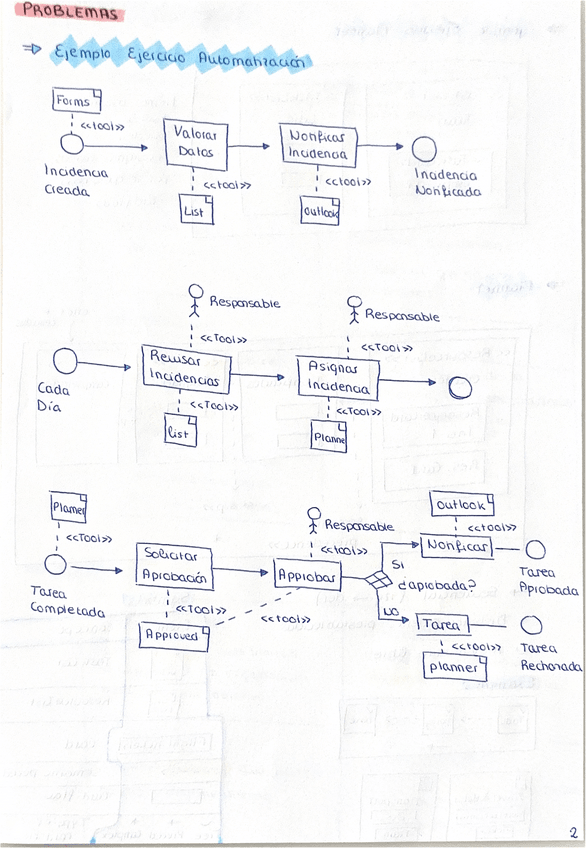 PROBLEMAS
⇒ Ejemplo Ejercicio Automatización
Forms
<<tool>>
Incidencia
Creada
Valorar
Datos
<<tool>>
List
Notificar
Incidencia
<<tool>>
Outlook
Incidencia
Notificada
Responsable
<<Tool>>
Revisar
Incidencias
<<Tool>>
list
Responsable
<<tool>>
Asignar
Incidencia
<<Tool>>
Planne
Cada
Día
Planner
<<Tool>>
Tarea
Completada
Solicitar
Aprobación
<<Tool>>
Approved
<<tool>>
Responsable
<<tool>>
Aprobar
Si
¿aprobada?
NO
Outlook
<<tool>>
Notificar
Tarea
Aprobada
Tarea
<<tool>>
planner
Tarea
Rechazada
2